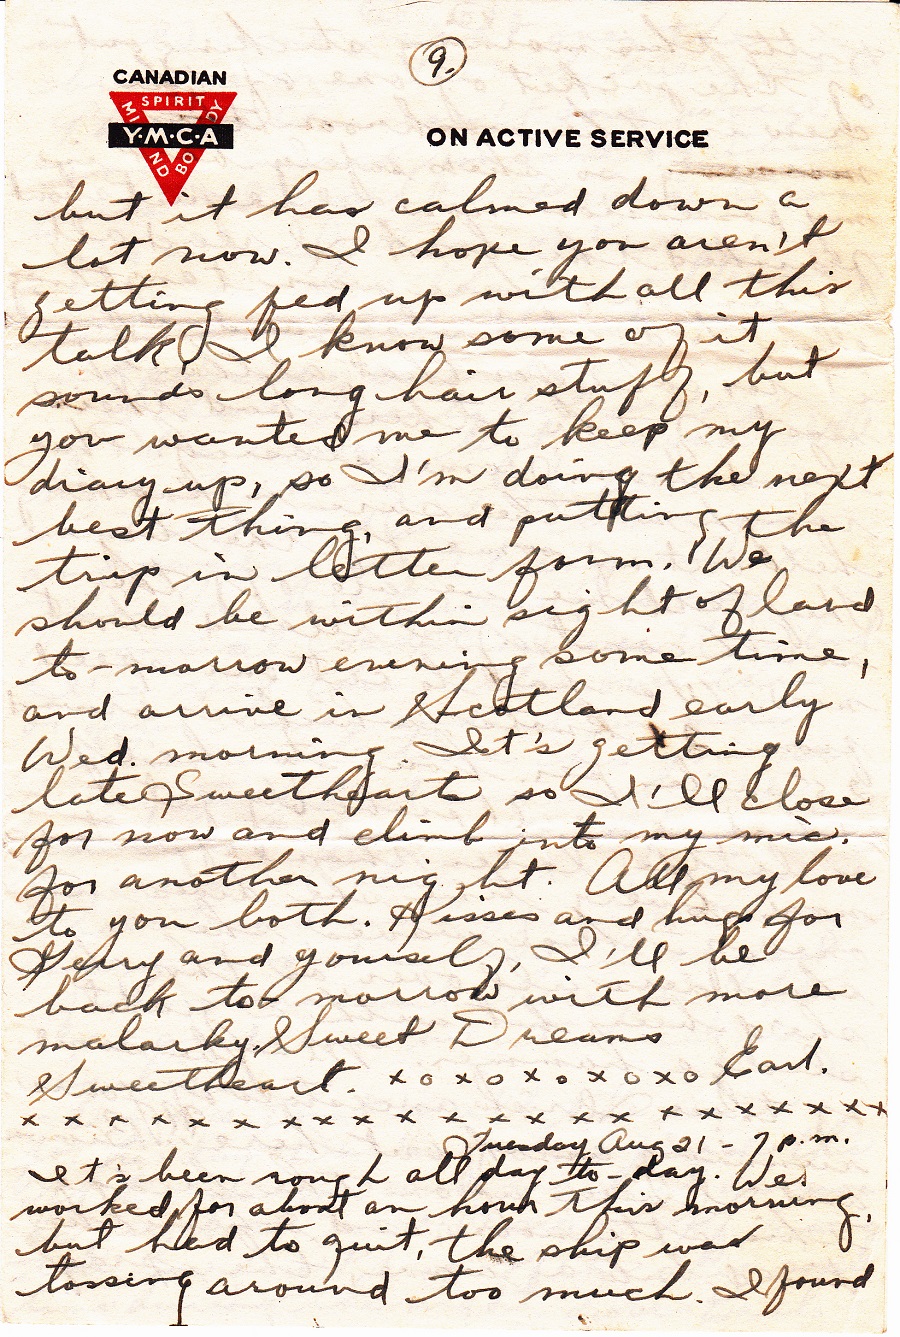 9.
CANADIAN
SPIRIT
MIND
BODY
Y·M·C·A
ON ACTIVE SERVICE
but it has calmed down a
lot now. I hope you aren't
getting fed up with all this
talk, I know some of it
sounds long hair stuff, but
you wanted me to keep my
diary up, so I'm doing the next
best thing, and putting the
trip in letter form. We
should be within sight of land
to-morrow evening some time,
and arrive in Scotland early
Wed. morning. It's getting
late Sweetheart so I'll close
for now and climb into my
for another night. All my love
to you both. Kisses and hugs for
Gerry and yourself, I'll be
back to-morrow with more
malarky. Sweet Dreams
Sweetheart. x o x o x o x o x o Earl.
x x x x x x x x x x x x x x x x x x x x x x x
Tuesday Aug 21 - 7 p.m.
It's been rough all day to-day. We
worked for about an hour this morning,
but had to quit, the ship was
tossing around too much. I found